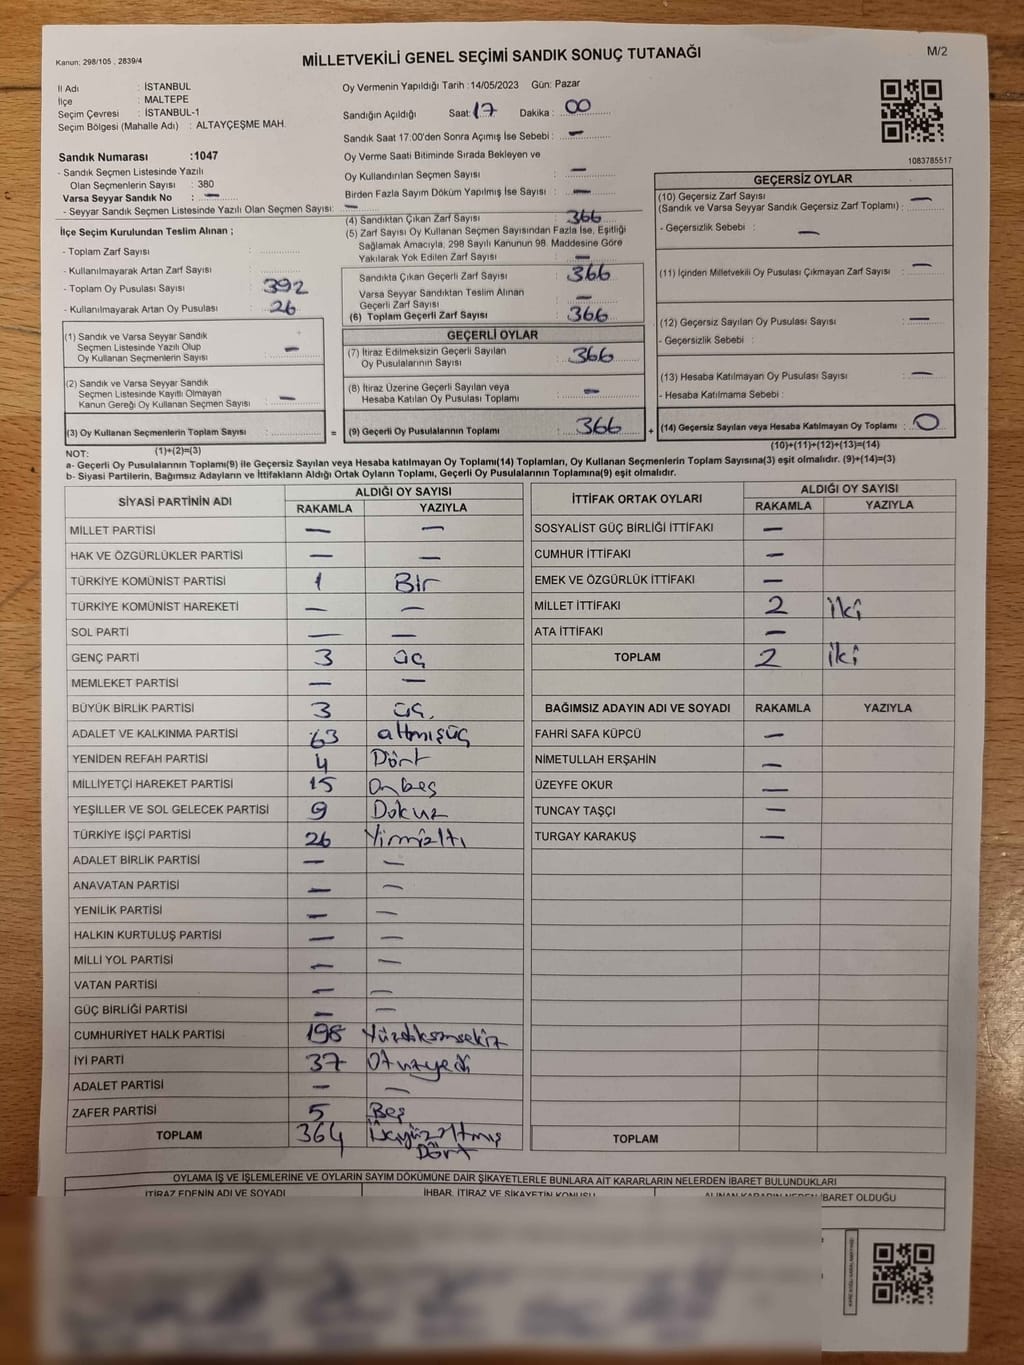 Kanun; 298/105 , 2839/4
MİLLETVEKİLİ GENEL SEÇİMİ SANDIK SONUÇ TUTANAĞI
M/2
İl Adı : İSTANBUL
İlçe : MALTEPE
Seçim Çevresi : İSTANBUL-1
Seçim Bölgesi (Mahalle Adı) : ALTAYÇEŞME MAH.
Sandık Numarası :1047
- Sandık Seçmen Listesinde Yazılı
Olan Seçmenlerin Sayısı : 380
Varsa Seyyar Sandık No : —
- Seyyar Sandık Seçmen Listesinde Yazılı Olan Seçmen Sayısı: —
İlçe Seçim Kurulundan Teslim Alınan ;
- Toplam Zarf Sayısı :
- Kullanılmayarak Artan Zarf Sayısı :
- Toplam Oy Pusulası Sayısı : 392
- Kullanılmayarak Artan Oy Pusulası : 26
(1) Sandık ve Varsa Seyyar Sandık
Seçmen Listesinde Yazılı Olup
Oy Kullanan Seçmenlerin Sayısı : —
(2) Sandık ve Varsa Seyyar Sandık
Seçmen Listesinde Kayıtlı Olmayan
Kanun Gereği Oy Kullanan Seçmen Sayısı : —
(3) Oy Kullanan Seçmenlerin Toplam Sayısı :
(1)+(2)=(3)
Oy Vermenin Yapıldığı Tarih :14/05/2023 Gün: Pazar
Sandığın Açıldığı Saat: 17 Dakika : 00
Sandık Saat 17:00'den Sonra Açımış İse Sebebi : —
Oy Verme Saati Bitiminde Sırada Bekleyen ve
Oy Kullandırılan Seçmen Sayısı : —
Birden Fazla Sayım Döküm Yapılmış İse Sayısı : —
(4) Sandıktan Çıkan Zarf Sayısı : 366
(5) Zarf Sayısı Oy Kullanan Seçmen Sayısından Fazla İse, Eşitliği
Sağlamak Amacıyla, 298 Sayılı Kanunun 98. Maddesine Göre
Yakılarak Yok Edilen Zarf Sayısı : —
Sandıkta Çıkan Geçerli Zarf Sayısı : 366
Varsa Seyyar Sandıktan Teslim Alınan
Geçerli Zarf Sayısı : —
(6) Toplam Geçerli Zarf Sayısı : 366
GEÇERLİ OYLAR
(7) İtiraz Edilmeksizin Geçerli Sayılan
Oy Pusulalarının Sayısı : 366
(8) İtiraz Üzerine Geçerli Sayılan veya
Hesaba Katılan Oy Pusulası Toplamı : —
= (9) Geçerli Oy Pusulalarının Toplamı : 366
1083785517
GEÇERSİZ OYLAR
(10) Geçersiz Zarf Sayısı
(Sandık ve Varsa Seyyar Sandık Geçersiz Zarf Toplamı) : —
- Geçersizlik Sebebi : —
(11) İçinden Milletvekili Oy Pusulası Çıkmayan Zarf Sayısı : —
(12) Geçersiz Sayılan Oy Pusulası Sayısı : —
- Geçersizlik Sebebi :
(13) Hesaba Katılmayan Oy Pusulası Sayısı : —
- Hesaba Katılmama Sebebi :
+ (14) Geçersiz Sayılan veya Hesaba Katılmayan Oy Toplamı : 0
(10)+(11)+(12)+(13)=(14)
NOT:
a- Geçerli Oy Pusulalarının Toplamı(9) ile Geçersiz Sayılan veya Hesaba katılmayan Oy Toplamı(14) Toplamları, Oy Kullanan Seçmenlerin Toplam Sayısına(3) eşit olmalıdır. (9)+(14)=(3)
b- Siyasi Partilerin, Bağımsız Adayların ve İttifakların Aldığı Ortak Oyların Toplamı, Geçerli Oy Pusulalarının Toplamına(9) eşit olmalıdır.
SİYASİ PARTİNİN ADI ALDIĞI OY SAYISI
RAKAMLA YAZIYLA
MİLLET PARTİSİ — —
HAK VE ÖZGÜRLÜKLER PARTİSİ — —
TÜRKİYE KOMÜNİST PARTİSİ 1 Bir
TÜRKİYE KOMÜNİST HAREKETİ — —
SOL PARTİ — —
GENÇ PARTİ 3 üç
MEMLEKET PARTİSİ — —
BÜYÜK BİRLİK PARTİSİ 3 üç.
ADALET VE KALKINMA PARTİSİ 63 altmışüç
YENİDEN REFAH PARTİSİ 4 Dört
MİLLİYETÇİ HAREKET PARTİSİ 15 Onbeş
YEŞİLLER VE SOL GELECEK PARTİSİ 9 Dokuz
TÜRKİYE İŞÇİ PARTİSİ 26 Yirmialtı
ADALET BİRLİK PARTİSİ — —
ANAVATAN PARTİSİ — —
YENİLİK PARTİSİ — —
HALKIN KURTULUŞ PARTİSİ — —
MİLLİ YOL PARTİSİ — —
VATAN PARTİSİ — —
GÜÇ BİRLİĞİ PARTİSİ — —
CUMHURİYET HALK PARTİSİ 198 Yüzdoksansekiz
İYİ PARTİ 37 Otuzyedi
ADALET PARTİSİ — —
ZAFER PARTİSİ 5 Beş
TOPLAM 364 Üçyüzaltmış
Dört
İTTİFAK ORTAK OYLARI ALDIĞI OY SAYISI
RAKAMLA YAZIYLA
SOSYALİST GÜÇ BİRLİĞİ İTTİFAKI —
CUMHUR İTTİFAKI —
EMEK VE ÖZGÜRLÜK İTTİFAKI —
MİLLET İTTİFAKI 2 iki
ATA İTTİFAKI —
TOPLAM 2 iki
BAĞIMSIZ ADAYIN ADI VE SOYADI RAKAMLA YAZIYLA
FAHRİ SAFA KÜPCÜ —
NİMETULLAH ERŞAHİN —
ÜZEYFE OKUR —
TUNCAY TAŞÇI —
TURGAY KARAKUŞ —
TOPLAM
OYLAMA İŞ VE İŞLEMLERİNE VE OYLARIN SAYIM DÖKÜMÜNE DAİR ŞİKAYETLERLE BUNLARA AİT KARARLARIN NELERDEN İBARET BULUNDUKLARI
İTİRAZ EDENİN ADI VE SOYADI İHBAR, İTİRAZ VE ŞİKAYETİN KONUSU ALINAN KARARIN NEDEN İBARET OLDUĞU